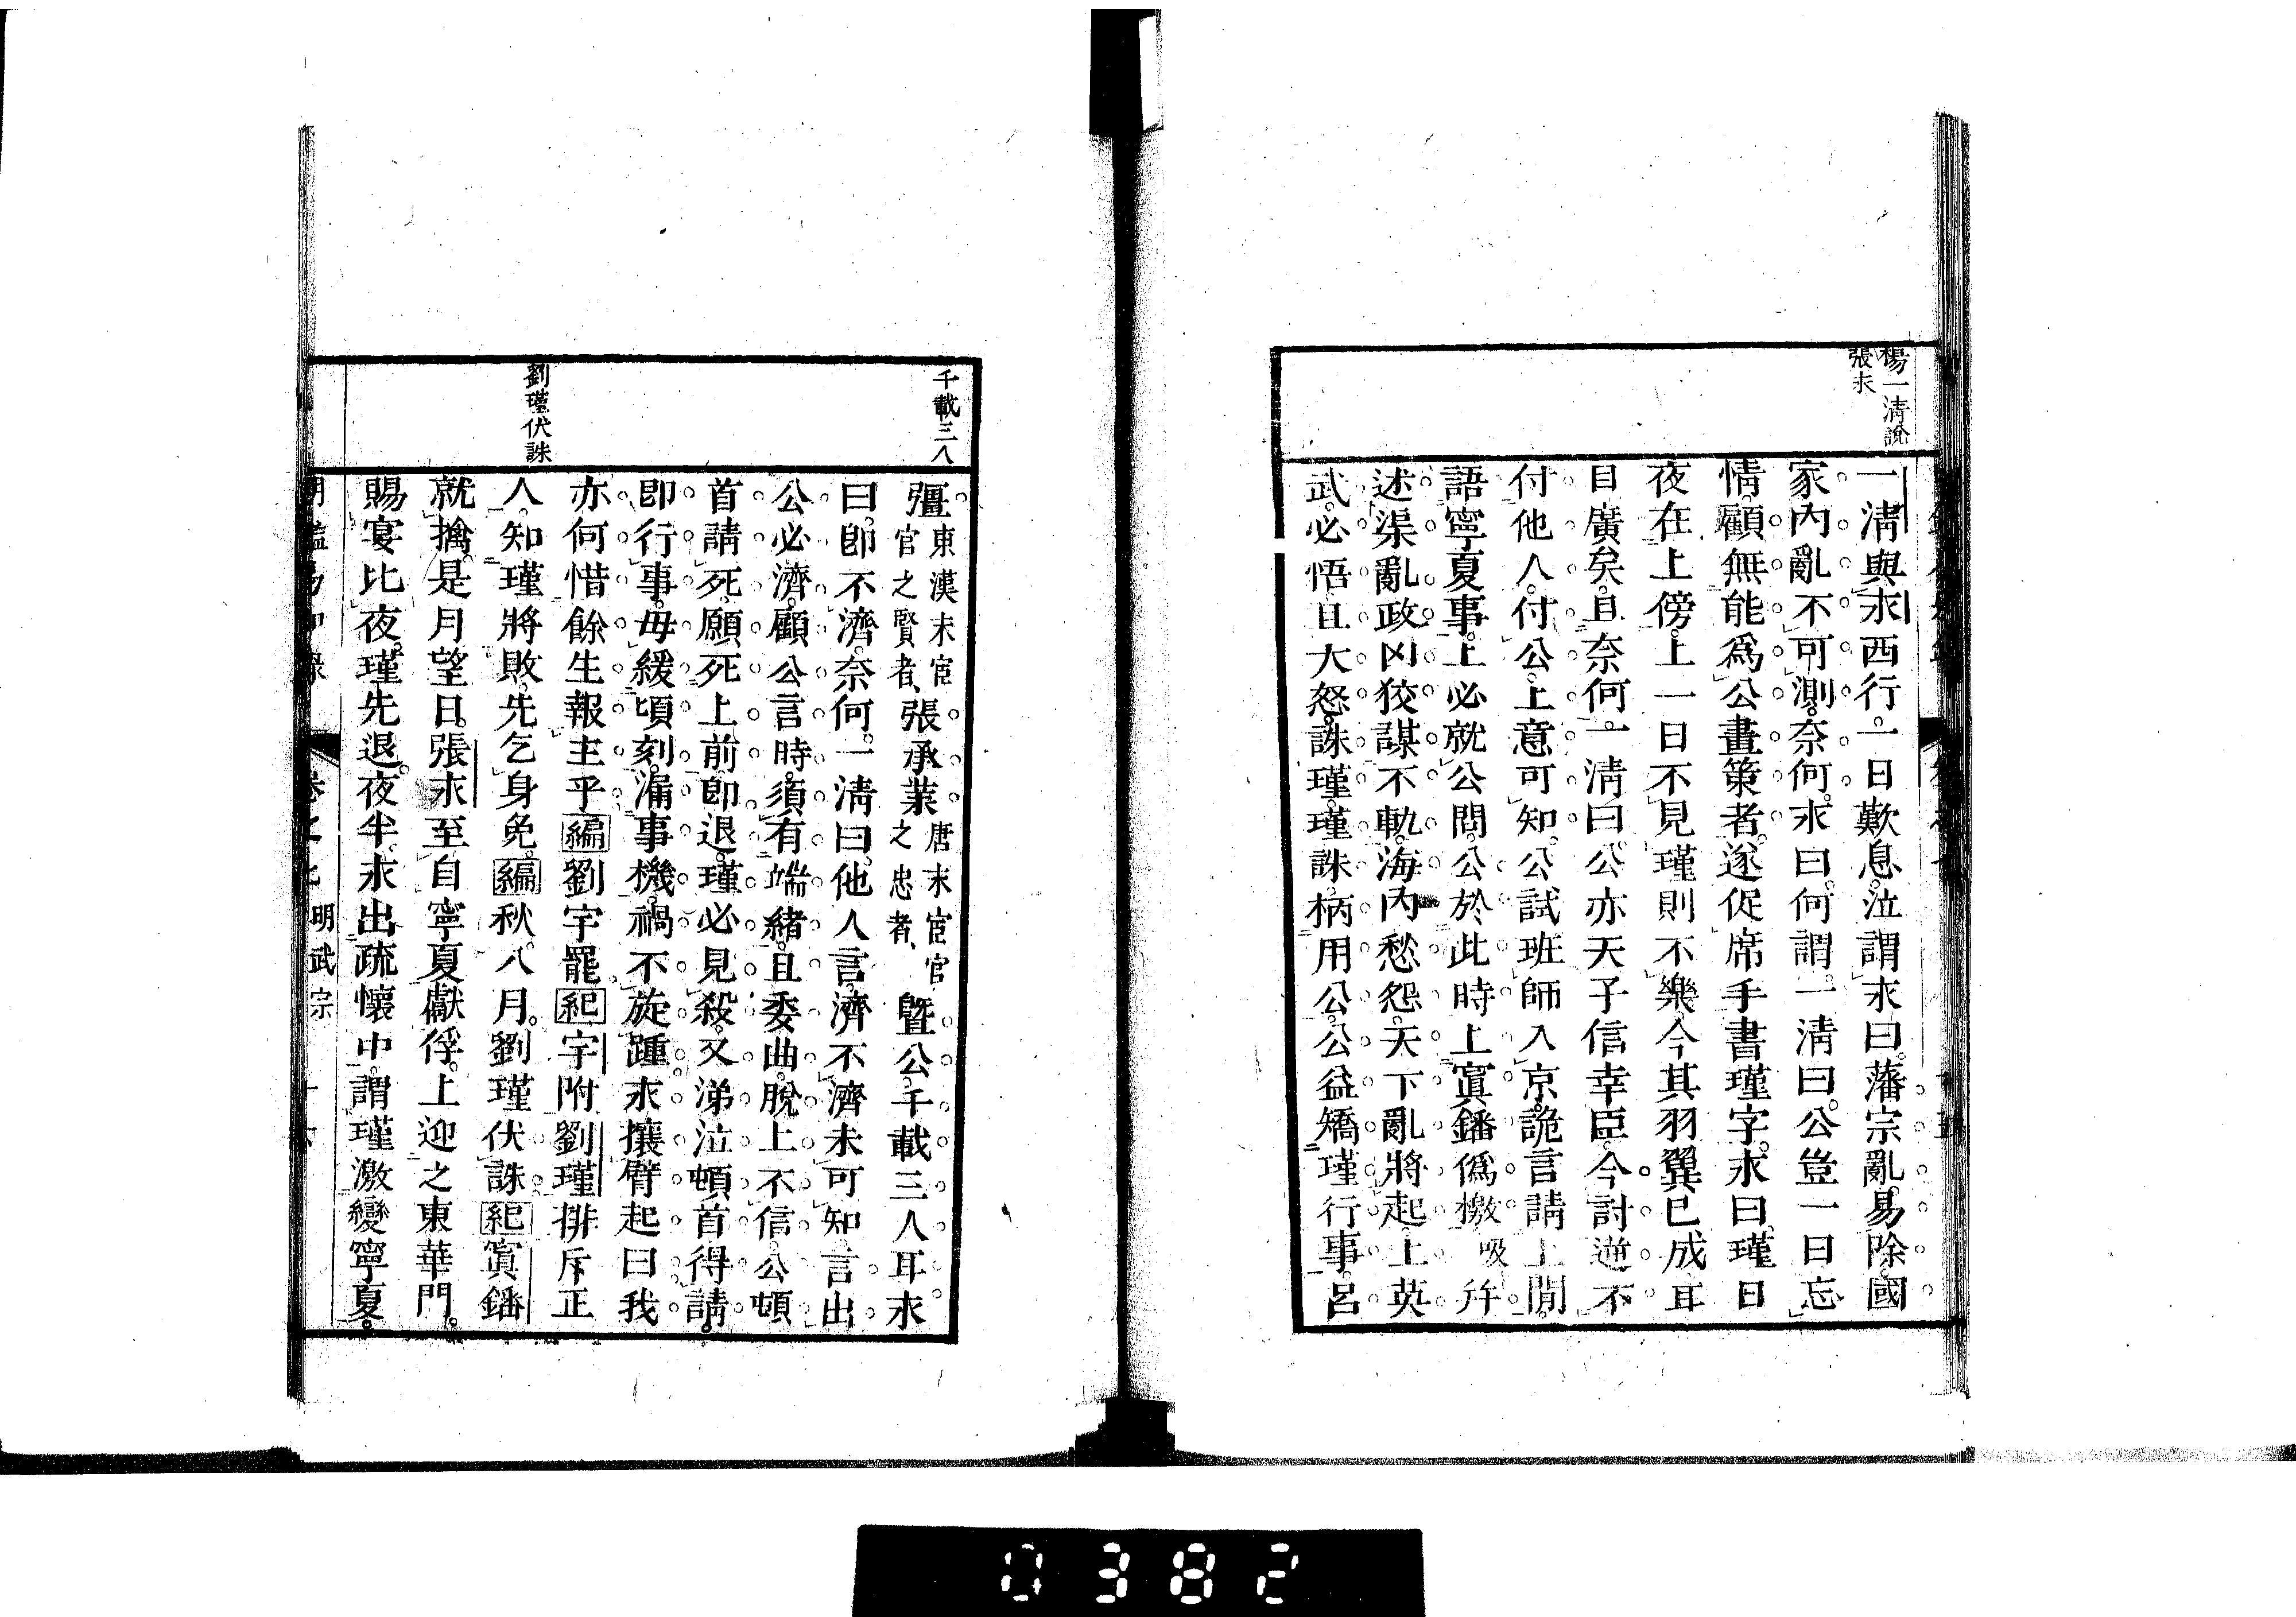 楊一清說
張永
一淸與永西行。一日歎息。泣謂永曰。藩宗亂。易除。國
家內亂不可測。奈何。永曰。何謂。一淸曰。公豈一日忘
情。顧無能爲公畫策者。遂促席手書瑾字。永曰。瑾日
夜在上傍。上一日不見瑾則不樂。今其羽翼已成耳
目廣矣。且奈何。一淸曰。公亦天子信幸臣。今討逆不
付他人。付公。上意可知。公試班師入京。詭言請上閒。
語寧夏事。上必就公問。公於此時上寘鐇僞檄吸幷
述渠亂政凶狡謀不軌。海內愁怨。天下亂將起。上英
武。必悟且大怒。誅瑾。瑾誅。柄用公。公益矯瑾行事。呂
千載三人
劉瑾伏誅
彊東漢末宦官之賢者、張承業唐末宦官之忠者、曁公。千載三人耳永
曰。卽不濟。奈何。一淸曰。他人言。濟不濟未可知。言出
公必濟。顧公言時。須有端緒。且委曲。脫上不信。公頓
首請死。願死上前。卽退。瑾必見殺。又涕泣頓首得請。
卽行事。毋緩頃刻。漏事機。禍不旋踵。永攘臂起曰。我
亦何惜餘生報主乎編劉宇罷紀宇附劉瑾排斥正
人。知瑾將敗。先乞身免。編秋。八月。劉瑾伏誅紀寘鐇
就擒。是月望日。張永至自寧夏獻俘。上迎之東華門。
賜宴比夜。瑾先退。夜半。永出疏懷中。謂瑾激變寧夏。
卷之七 明武宗 十六
0382